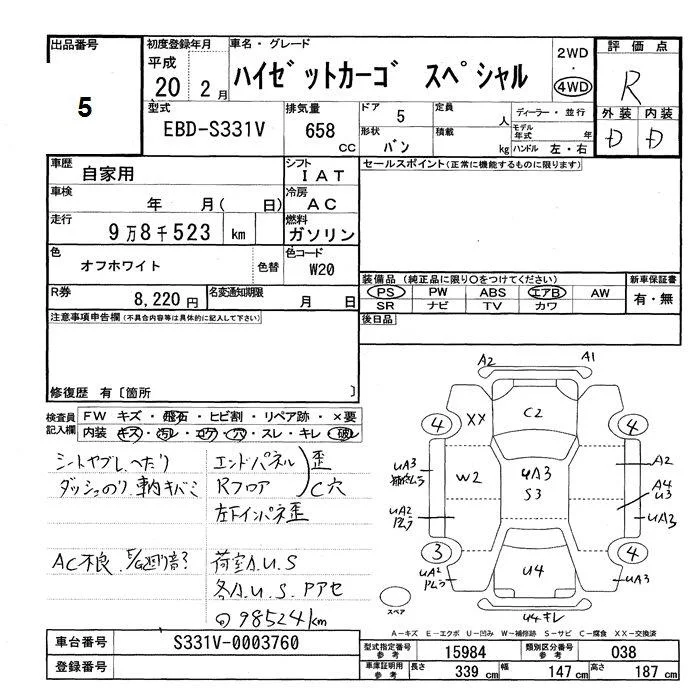 出品番号
5
初度登録年月
平成
20 2月
車名・グレード
ハイゼットカーゴ スペシャル
2WD
・
4WD
評価点
R
外装 内装
D D
型式
EBD-S331V
排気量
658 cc
ドア 5
定員 人
形状 バン
積載 kg
ディーラー・並行
モデル年式 年
ハンドル 左・右
車歴 自家用
シフト IAT
車検 年 月( 日)
冷房 AC
走行 9万8千523 km
燃料 ガソリン
色 オフホワイト 色替
色コード W20
R券 8,220円
名変通知期限 月 日
セールスポイント(正常に機能するものに限ります)
装備品 (純正品に限り○をつけてください)
PS PW ABS エアB AW
SR ナビ TV カワ
新車保証書
有・無
後日品
注意事項申告欄(不具合内容等は具体的に記入して下さい)
修復歴 有〔箇所 〕
検査員記入欄
FW キズ・飛石・ヒビ割・リペア跡・×要
内装 キズ・汚レ・コゲ・穴・スレ・キレ・破レ
シートヤブレ、ヘたり
ダッシュのり 車内キバミ
エンドパネル 歪
Rフロア C穴
左下インパネ歪
AC不良
荷室A.U.S
各A.U.S.Pアセ
98524km
A2 A1
4 XX C2 4
UA3
W2 UA3 S3 A2
UA2 A4 U3
UA3
3 U4 4
UA2 UA3
U4キレ
スペア
A-キズ E-エクボ U-凹み W-補修跡 S-サビ C-腐食 XX-交換済
車台番号 S331V-0003760
登録番号
型式指定番号参考 15984
類別区分番号参考 038
車庫証明用参考 長さ 339 cm 幅 147 cm 高さ 187 cm